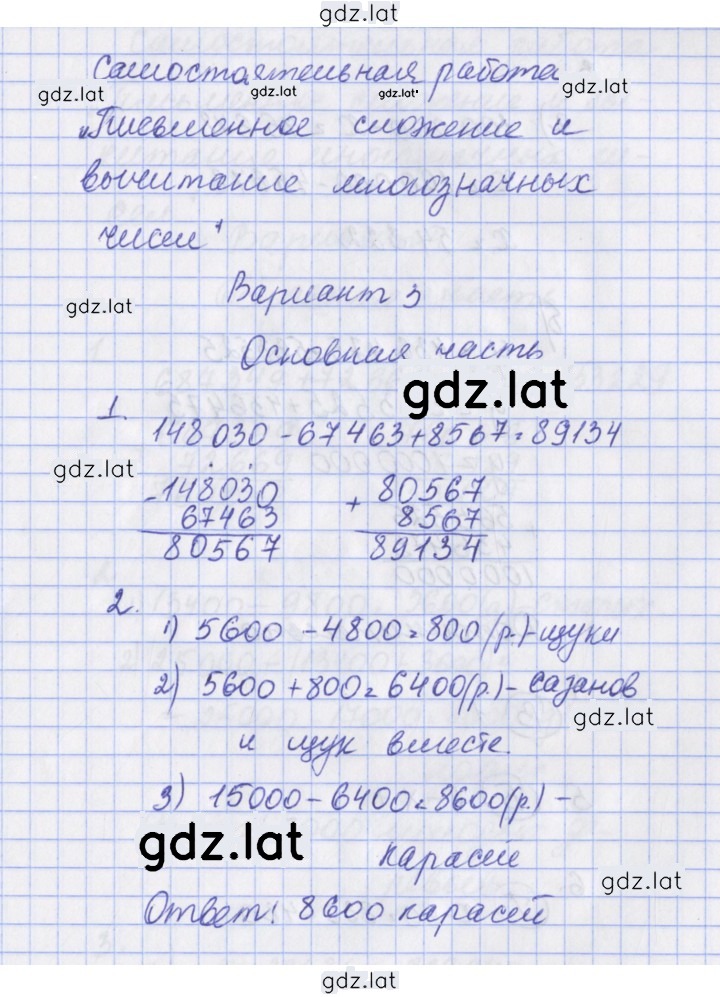 gdz.lat
Самостоятельная работа
gdz.lat gdz.lat gdz.lat gdz.lat
„Письменное сложение и
вычитание многозначных
чисел"
Вариант 3
gdz.lat
Основная часть
gdz.lat
1.
148030 - 67463 + 8567 = 89134
gdz.lat
- 148030 + 80567
67463 8567
80567 89134
2.
1) 5600 - 4800 = 800 (р.) - щуки
2) 5600 + 800 = 6400 (р.) - сазанов
gdz.lat
и щук вместе.
3) 15000 - 6400 = 8600 (р.) -
gdz.lat
карасей
gdz.lat
Ответ: 8600 карасей
gdz.lat